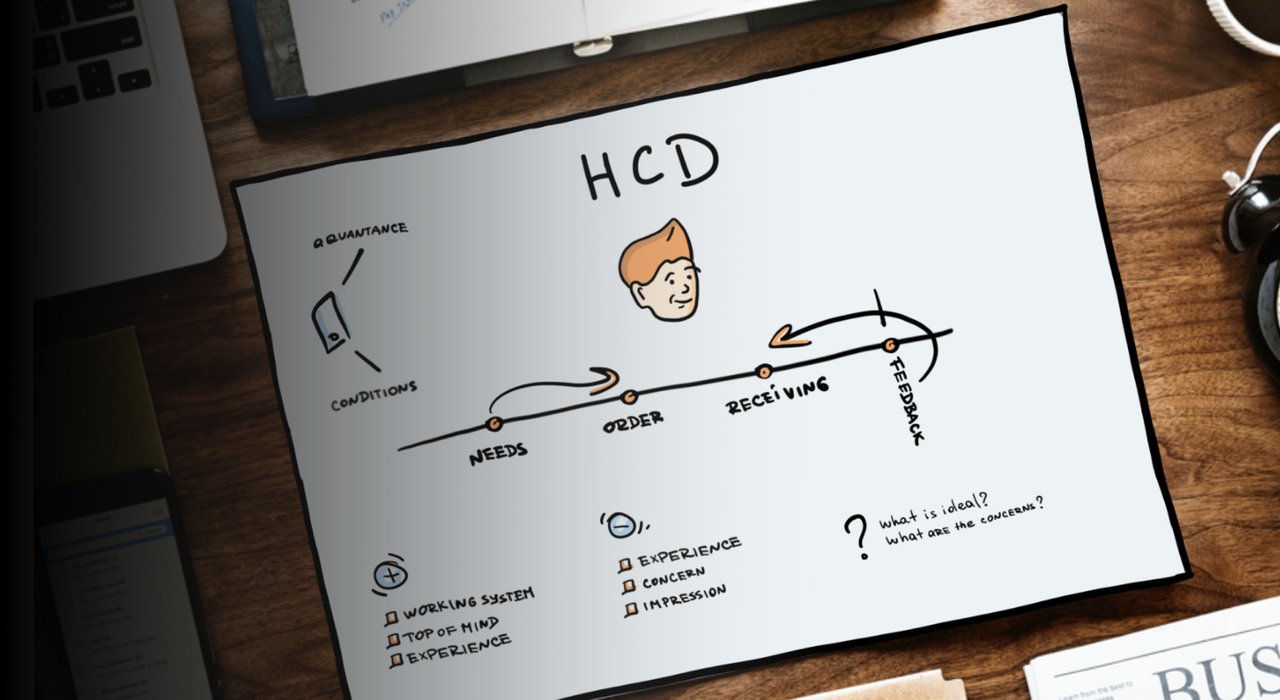 HCD
aQUANTANCE
CONDITIONS
NEEDS
ORDER
RECEiVING
FEEDBACK
+
WORKING SYSTEM
TOP OF MIND
EXPERIENCE
-
EXPERIENCE
CONCERN
IMPRESSION
?
what is ideal?
what ARE the CONCERNS?
Learn from the best to
BUS